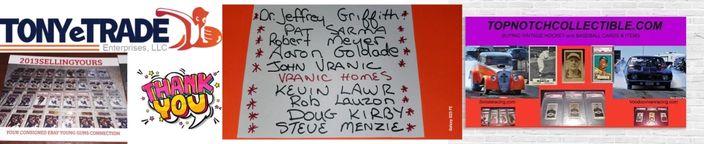 TONYeTRADE
Enterprises, LLC
2013SELLINGYOURS
YOUR CONSIGNED EBAY YOUNG GUNS CONNECTION
THANK
YOU
Dr. Jeffrey Griffith
PAT SARMA
Robert Meyer
Ron Golbade
JOHN VRANIC
VRANIC HOMES
KEVIN LAWR
Rob Lauzon
DOUG KIRBY
STEVE MENZIE
TOPNOTCHCOLLECTIBLE.COM
BUYING VINTAGE HOCKEY and BASEBALL CARDS & ITEMS